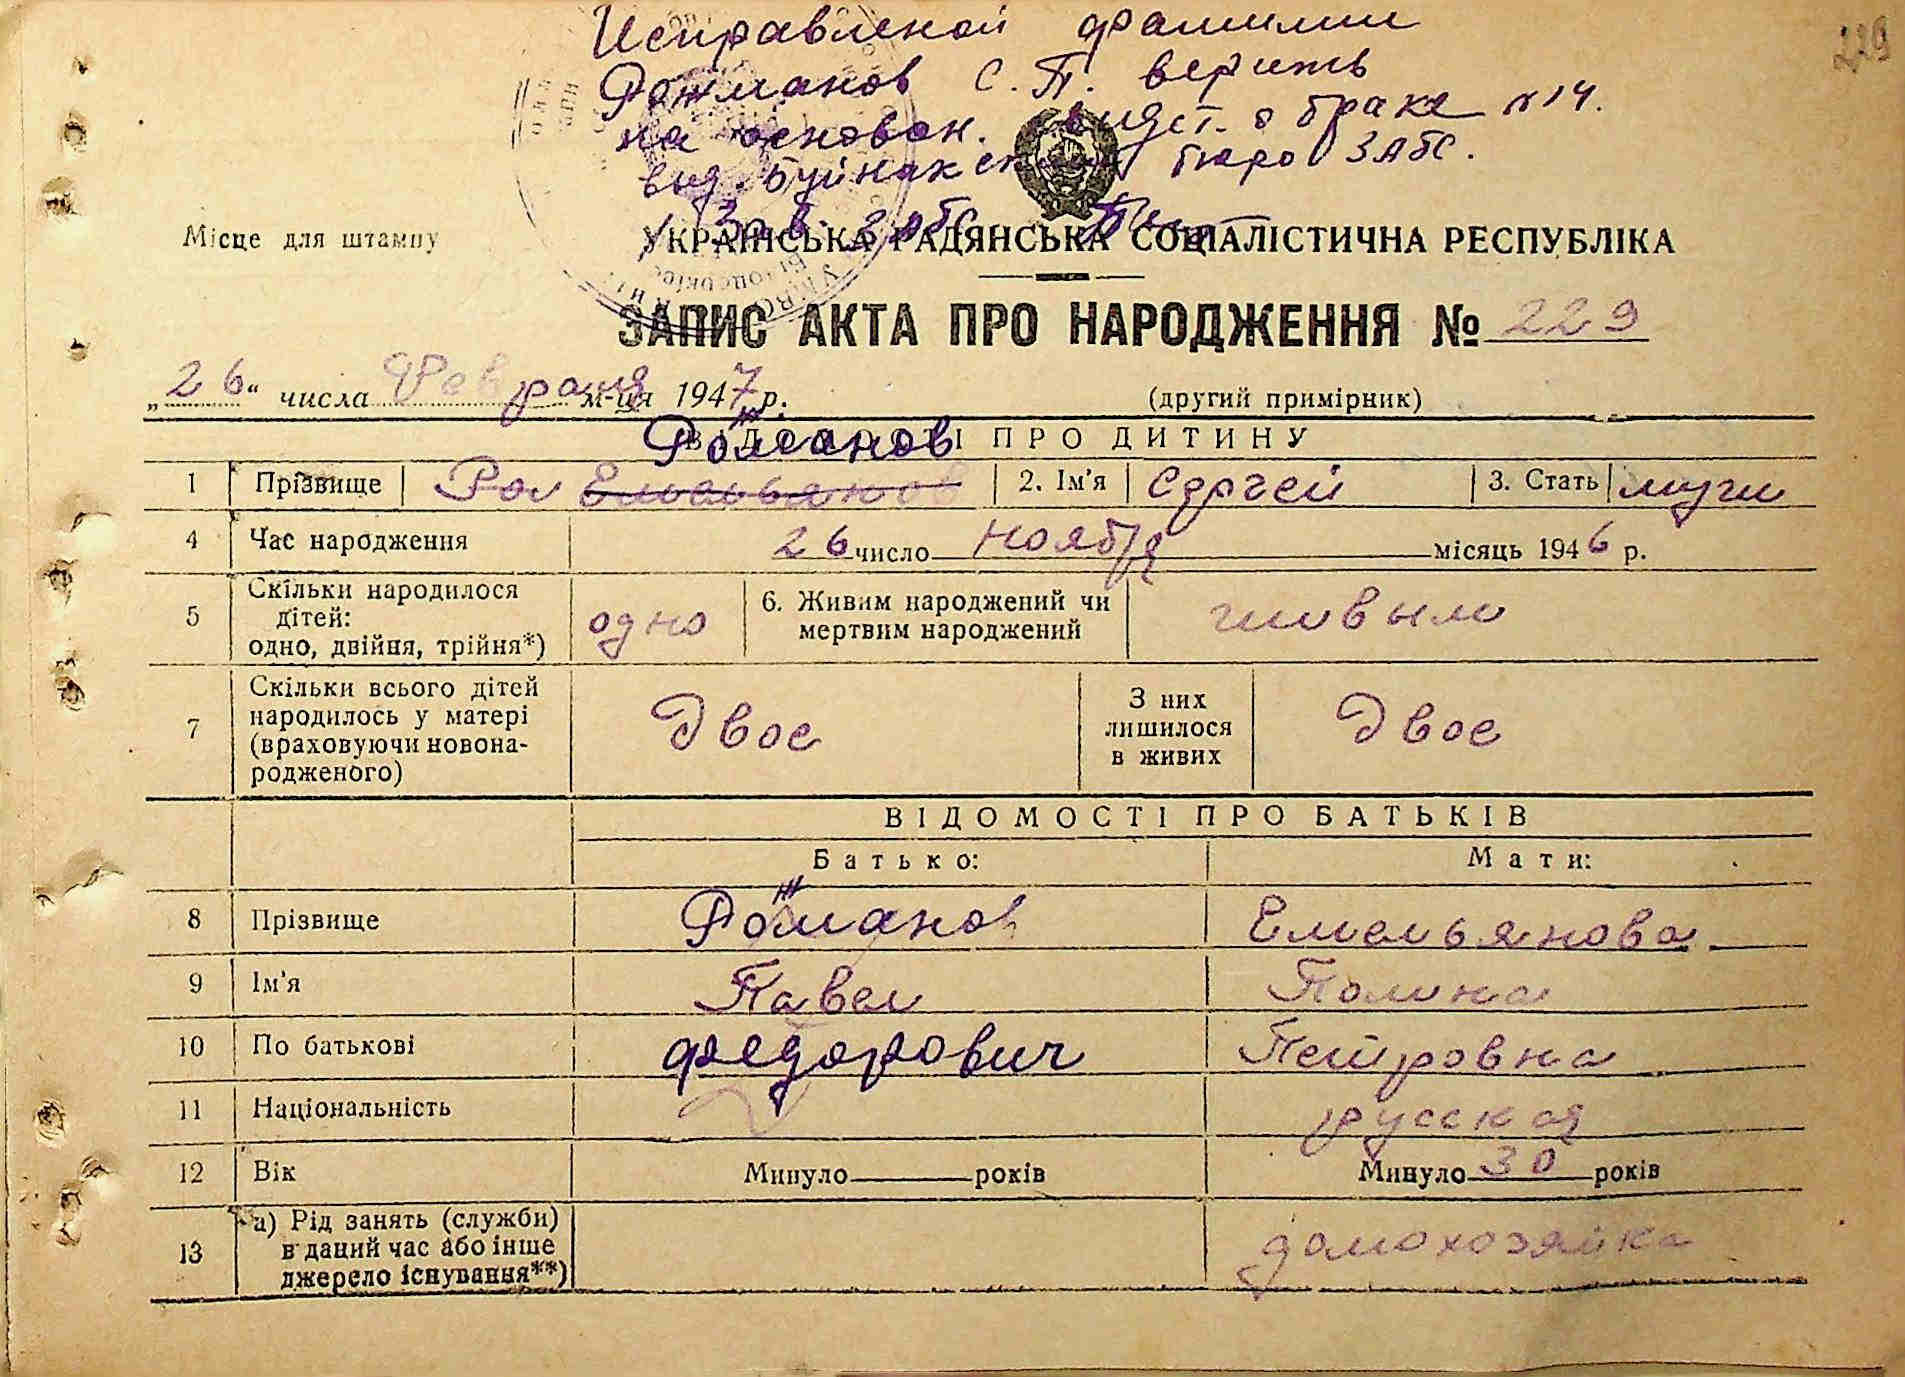 229
Исправленой фамилии
Рожманов С.П. верить
на основан. свидет. о браке №14.
выд. Буйнакским бюро ЗАГС.
Зав. Загс
Місце для штампу
УКРАЇНСЬКА РАДЯНСЬКА СОЦІАЛІСТИЧНА РЕСПУБЛІКА
ЗАПИС АКТА ПРО НАРОДЖЕННЯ № 229
„26“ числа Февраля м-ця 1947 р.
(другий примірник)
ВІДОМОСТІ ПРО ДИТИНУ
Рожманов
1 Прізвище Ром Емельянов 2. Ім'я Сергей 3. Стать мужи
4 Час народження 26 число ноября місяць 1946 р.
5 Скільки народилося дітей: одно, двійня, трійня*) одно 6. Живим народжений чи мертвим народжений живым
7 Скільки всього дітей народилось у матері (враховуючи новонародженого) Двое З них лишилося в живих Двое
ВІДОМОСТІ ПРО БАТЬКІВ
Батько: Мати:
8 Прізвище Рожманов Емельянова
9 Ім'я Павел Полина
10 По батькові Федорович Петровна
11 Національність русская
12 Вік Минуло років Минуло 30 років
13 а) Рід занять (служби) в даний час або інше джерело існування**) домохозяйка